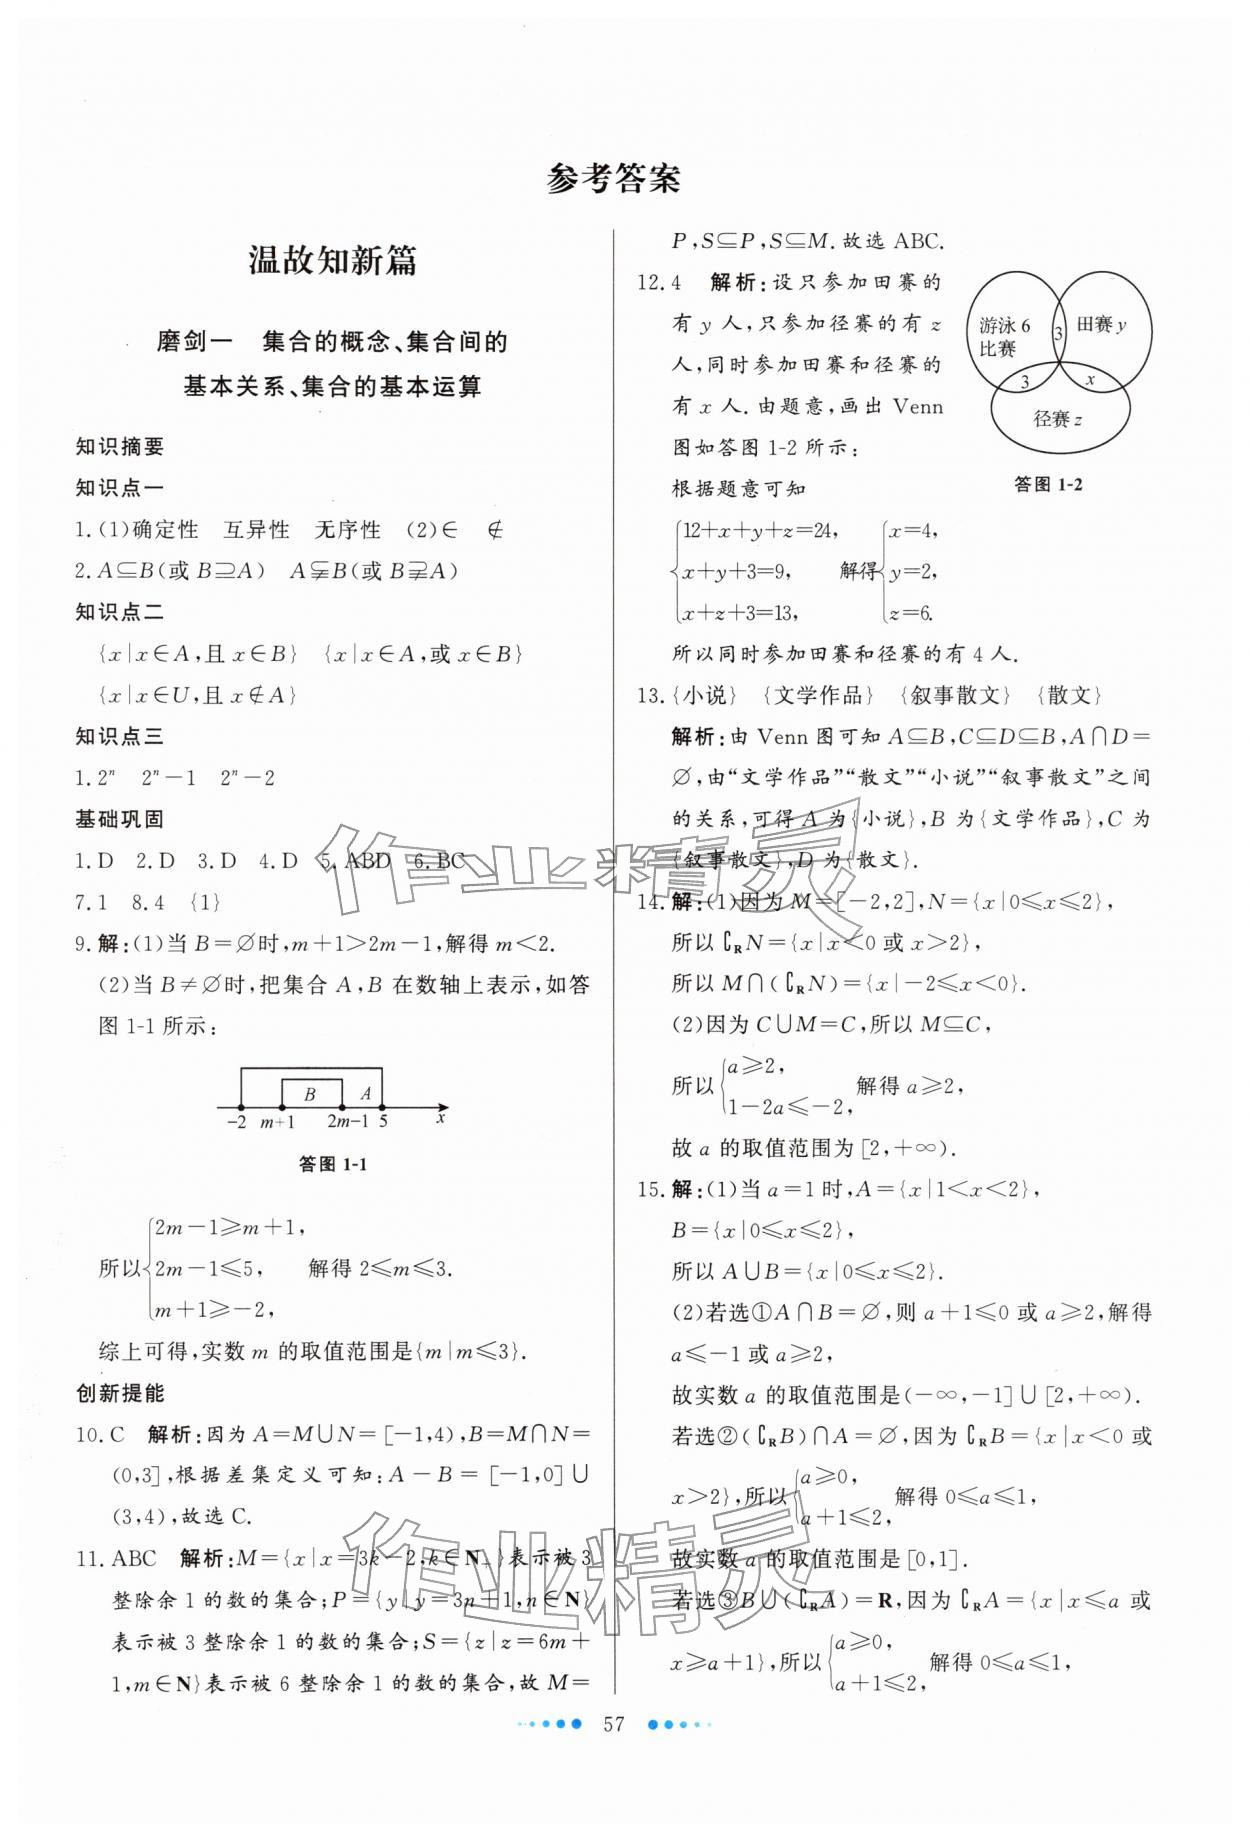 参考答案
温故知新篇
磨剑一　集合的概念、集合间的
基本关系、集合的基本运算
知识摘要
知识点一
1.(1)确定性　互异性　无序性　(2)∈　∉
2.A⊆B(或 B⊇A)　A⫋B(或 B⫌A)
知识点二
{x|x∈A,且 x∈B}　{x|x∈A,或 x∈B}
{x|x∈U,且 x∉A}
知识点三
1.2ⁿ　2ⁿ－1　2ⁿ－2
基础巩固
1.D　2.D　3.D　4.D　5.ABD　6.BC
7.1　8.4　{1}
9.解:(1)当 B＝∅时,m＋1>2m－1,解得 m<2.
(2)当 B≠∅时,把集合 A,B 在数轴上表示,如答
图 1-1 所示:
B　A
－2　m+1　2m-1　5　x
答图 1-1
所以{2m－1≥m＋1,
2m－1≤5,　解得 2≤m≤3.
m＋1≥－2,
综上可得,实数 m 的取值范围是{m|m≤3}.
创新提能
10.C　解析:因为 A＝M∪N＝[－1,4),B＝M∩N＝
(0,3],根据差集定义可知:A－B＝[－1,0]∪
(3,4),故选 C.
11.ABC　解析:M＝{x|x＝3k－2,k∈N₊}表示被 3
整除余 1 的数的集合;P＝{y|y＝3n＋1,n∈N}
表示被 3 整除余 1 的数的集合;S＝{z|z＝6m＋
1,m∈N}表示被 6 整除余 1 的数的集合,故 M＝
P,S⊆P,S⊆M.故选 ABC.
12.4　解析:设只参加田赛的
有 y 人,只参加径赛的有 z
人,同时参加田赛和径赛的
有 x 人.由题意,画出 Venn
图如答图 1-2 所示:
游泳 6
比赛
3
田赛 y
3
x
径赛 z
答图 1-2
根据题意可知
{12＋x＋y＋z＝24,　{x＝4,
x＋y＋3＝9,　解得　y＝2,
x＋z＋3＝13,　z＝6.
所以同时参加田赛和径赛的有 4 人.
13.{小说}　{文学作品}　{叙事散文}　{散文}
解析:由 Venn 图可知 A⊆B,C⊆D⊆B,A∩D＝
∅,由“文学作品”“散文”“小说”“叙事散文”之间
的关系,可得 A 为{小说},B 为{文学作品},C 为
{叙事散文},D 为{散文}.
14.解:(1)因为 M＝[－2,2],N＝{x|0≤x≤2},
所以 ∁RN＝{x|x<0 或 x>2},
所以 M∩(∁RN)＝{x|－2≤x<0}.
(2)因为 C∪M＝C,所以 M⊆C,
所以{a≥2,
1－2a≤－2,　解得 a≥2,
故 a 的取值范围为[2,＋∞).
15.解:(1)当 a＝1 时,A＝{x|1<x<2},
B＝{x|0≤x≤2},
所以 A∪B＝{x|0≤x≤2}.
(2)若选①A∩B＝∅,则 a＋1≤0 或 a≥2,解得
a≤－1 或 a≥2,
故实数 a 的取值范围是(－∞,－1]∪[2,＋∞).
若选②(∁RB)∩A＝∅,因为 ∁RB＝{x|x<0 或
x>2},所以{a≥0,
a＋1≤2,　解得 0≤a≤1,
故实数 a 的取值范围是[0,1].
若选③B∪(∁RA)＝R,因为 ∁RA＝{x|x≤a 或
x≥a＋1},所以{a≥0,
a＋1≤2,　解得 0≤a≤1,
57
作业精灵
作业精灵